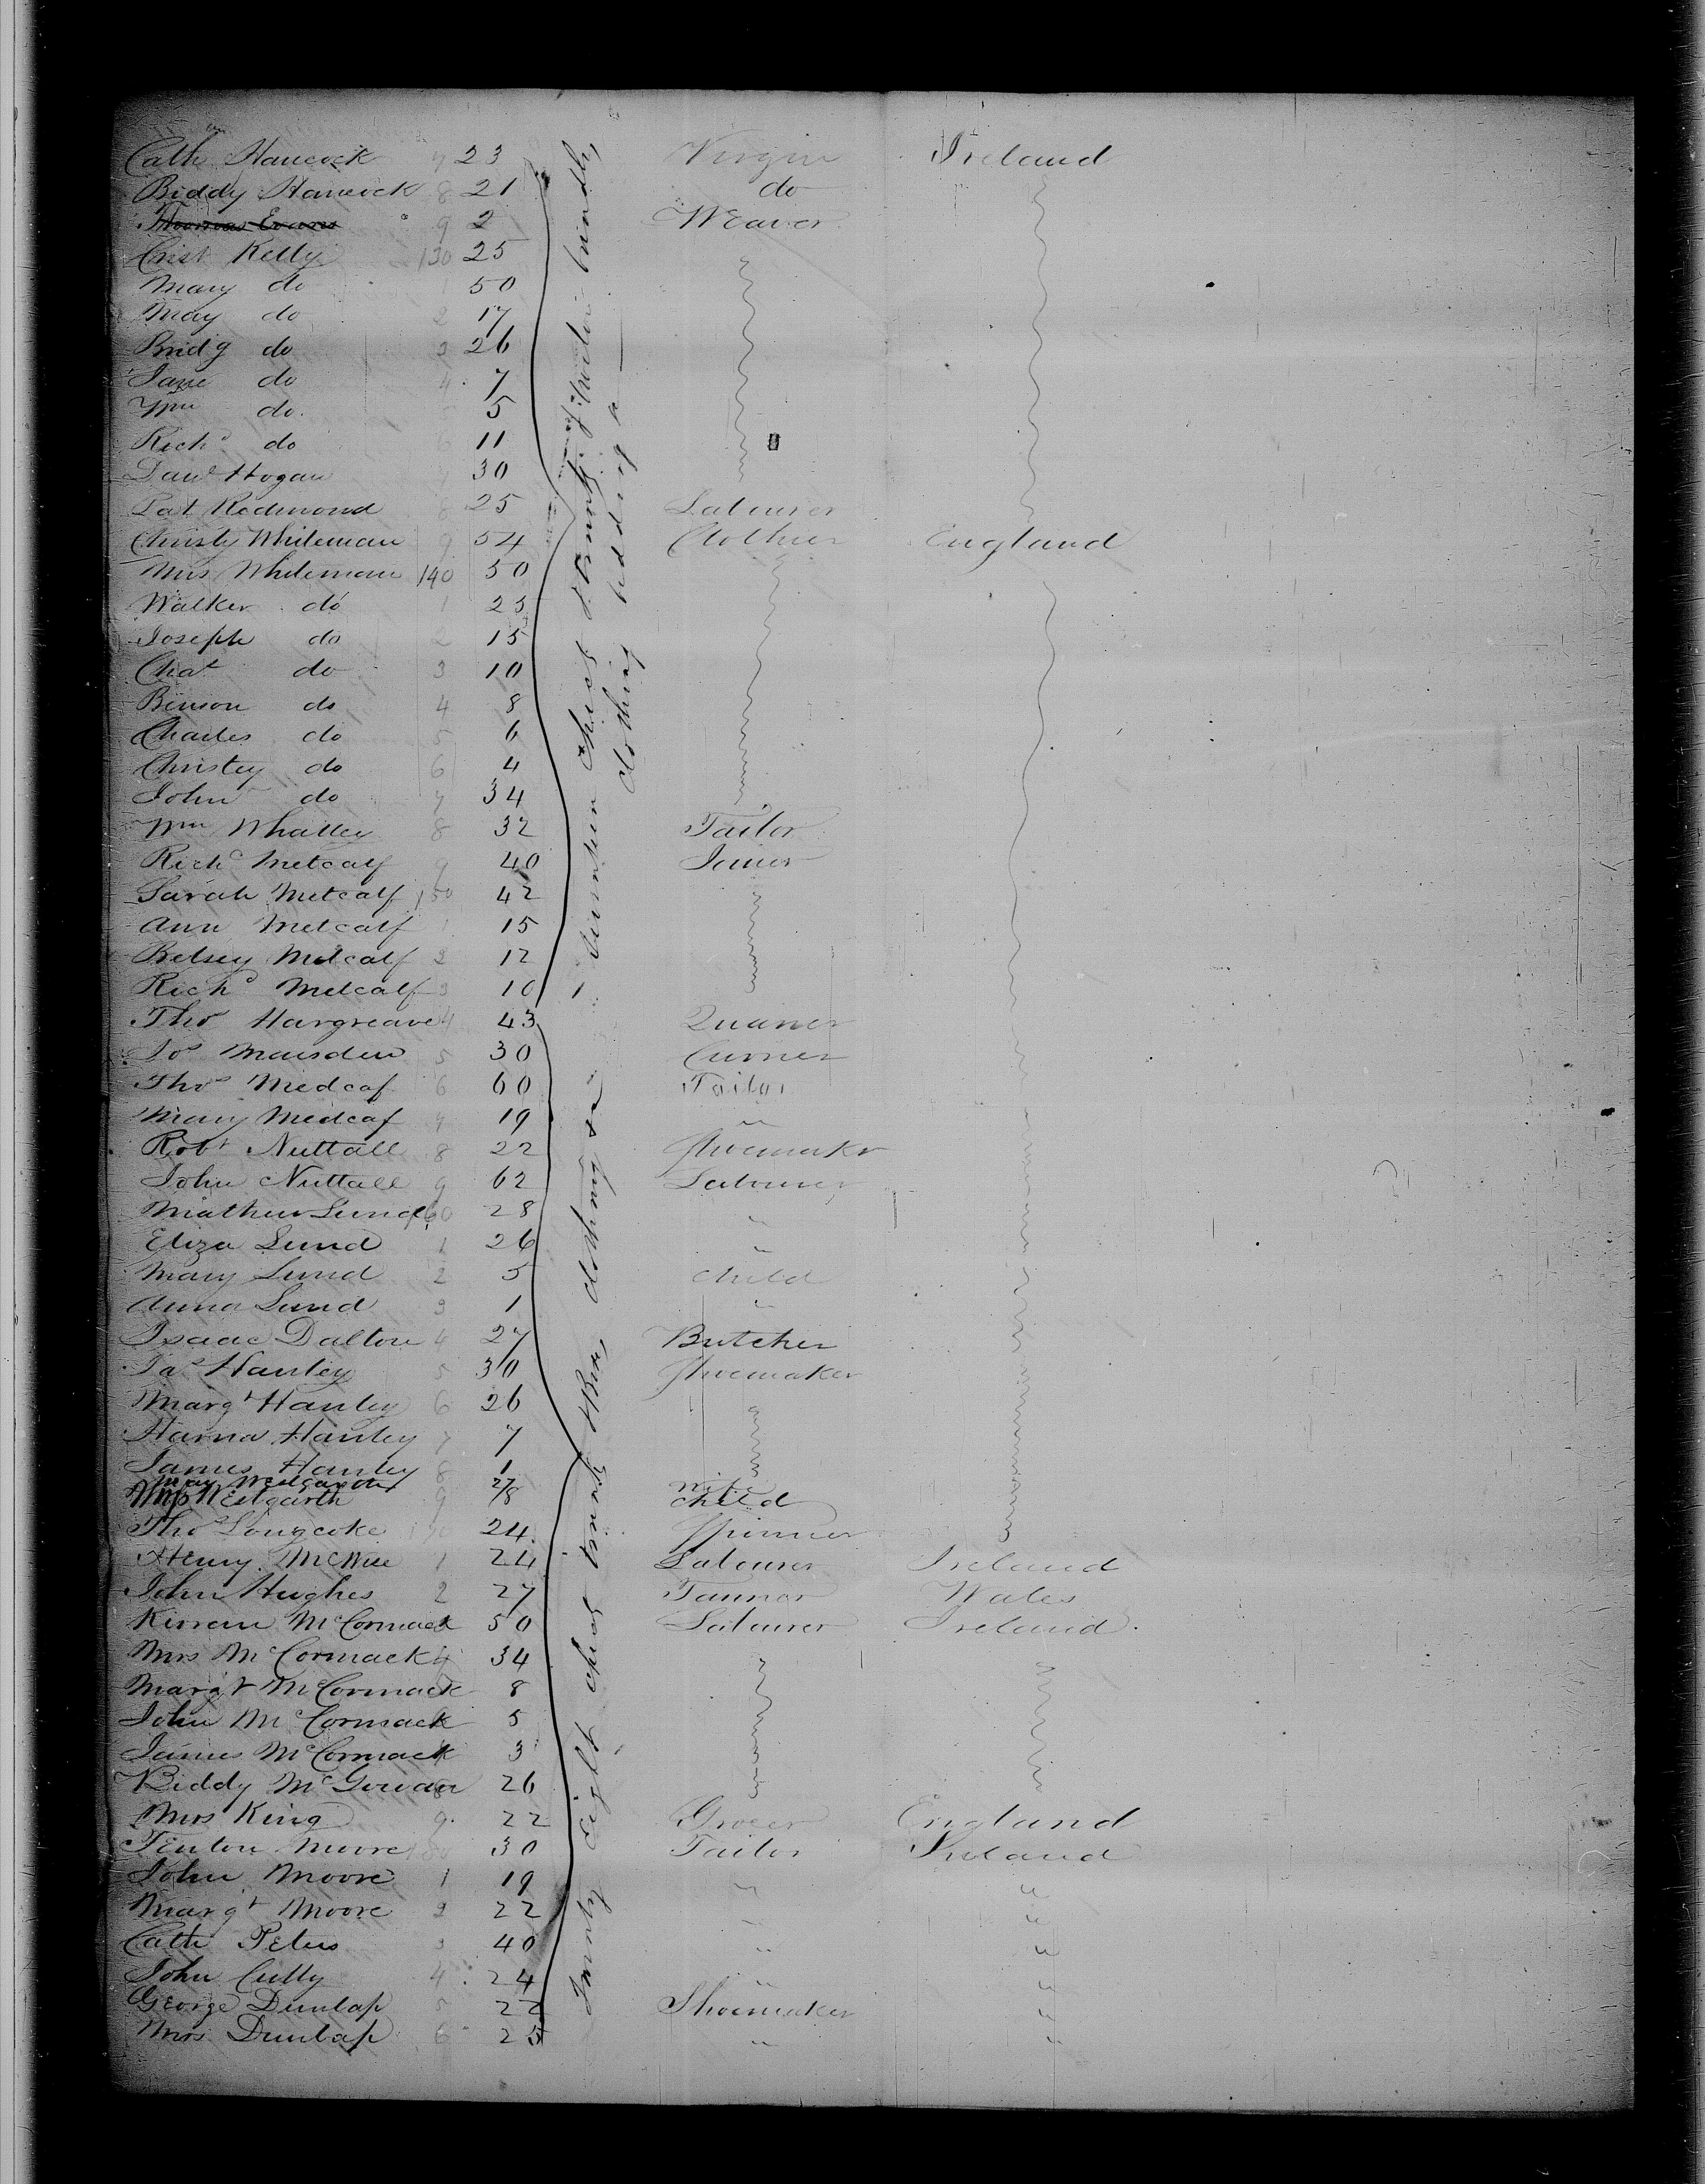 Cath Hancock 7 23 Virgin Ireland
Biddy Hancock 8 21 do
Thomas Evans 9 2 Weaver
Crist Kelly 130 25
Mary do 50
May do 2 17
Bridg do 3 26
Jane do 4 7
Wm do 5
Richd do 6 11
Danl Hogan 30
Pat Redmond 8 25 Labourer
Christy Whiteman 9 54 Clothier England
Mrs Whiteman 140 50
Walker do 1 23
Joseph do 2 15
Chat do 3 10
Binson do 4 8
Charles do 5 6
Christey do 6 4
John do 7 34
Wm Whalley 8 32 Tailor
Richd Metcalf 9 40 Joiner
Sarah Metcalf 150 42
Ann Metcalf 1 15
Betsey Metcalf 2 12
Richd Metcalf 3 10
Thos Hargreave 4 43
Jos Marsden 5 30 Currier
Thos Medcaf 6 60 Tailor
Mary Medcaf 7 19 "
Robt Nuttall 8 22 Shoemaker
John Nuttall 9 62 Labourer
Mathew Lund 160 28 "
Eliza Lund 1 26 "
Mary Lund 2 5 child
Anna Lund 3 1 "
Isaac Dalton 4 27 Butcher
Jas Hanley 5 30 Shoemaker
Margt Hanley 6 26
Hanna Hanley 7 7
James Hanley 8 1
May Westgarth 27 wife
Westgarth 9 /8 child
Thos Longcoke 170 24 Spinner
Henry 1 24 Labourer Ireland
John Hughes 2 27 Tanner Wales
Kirren McCormack 50 Labourer Ireland
Mrs McCormack 4 34
Margt McCormack 8
John McCormack 5
James McCormack 3
Biddy McGowan 26
Mrs King 9 22 Grocer England
Fenton Moore 180 30 Tailor Ireland
John Moore 1 19 " "
Margt Moore 2 22 " "
Cath Peters 3 40 " "
John Cully 4 24 " "
George Dunlap 5 22 Shoemaker "
Mrs Dunlap 6 25 " "
Seventeen chests & trunks of
clothing bedding &
Twenty eight chest trunks & Box, clothing &c